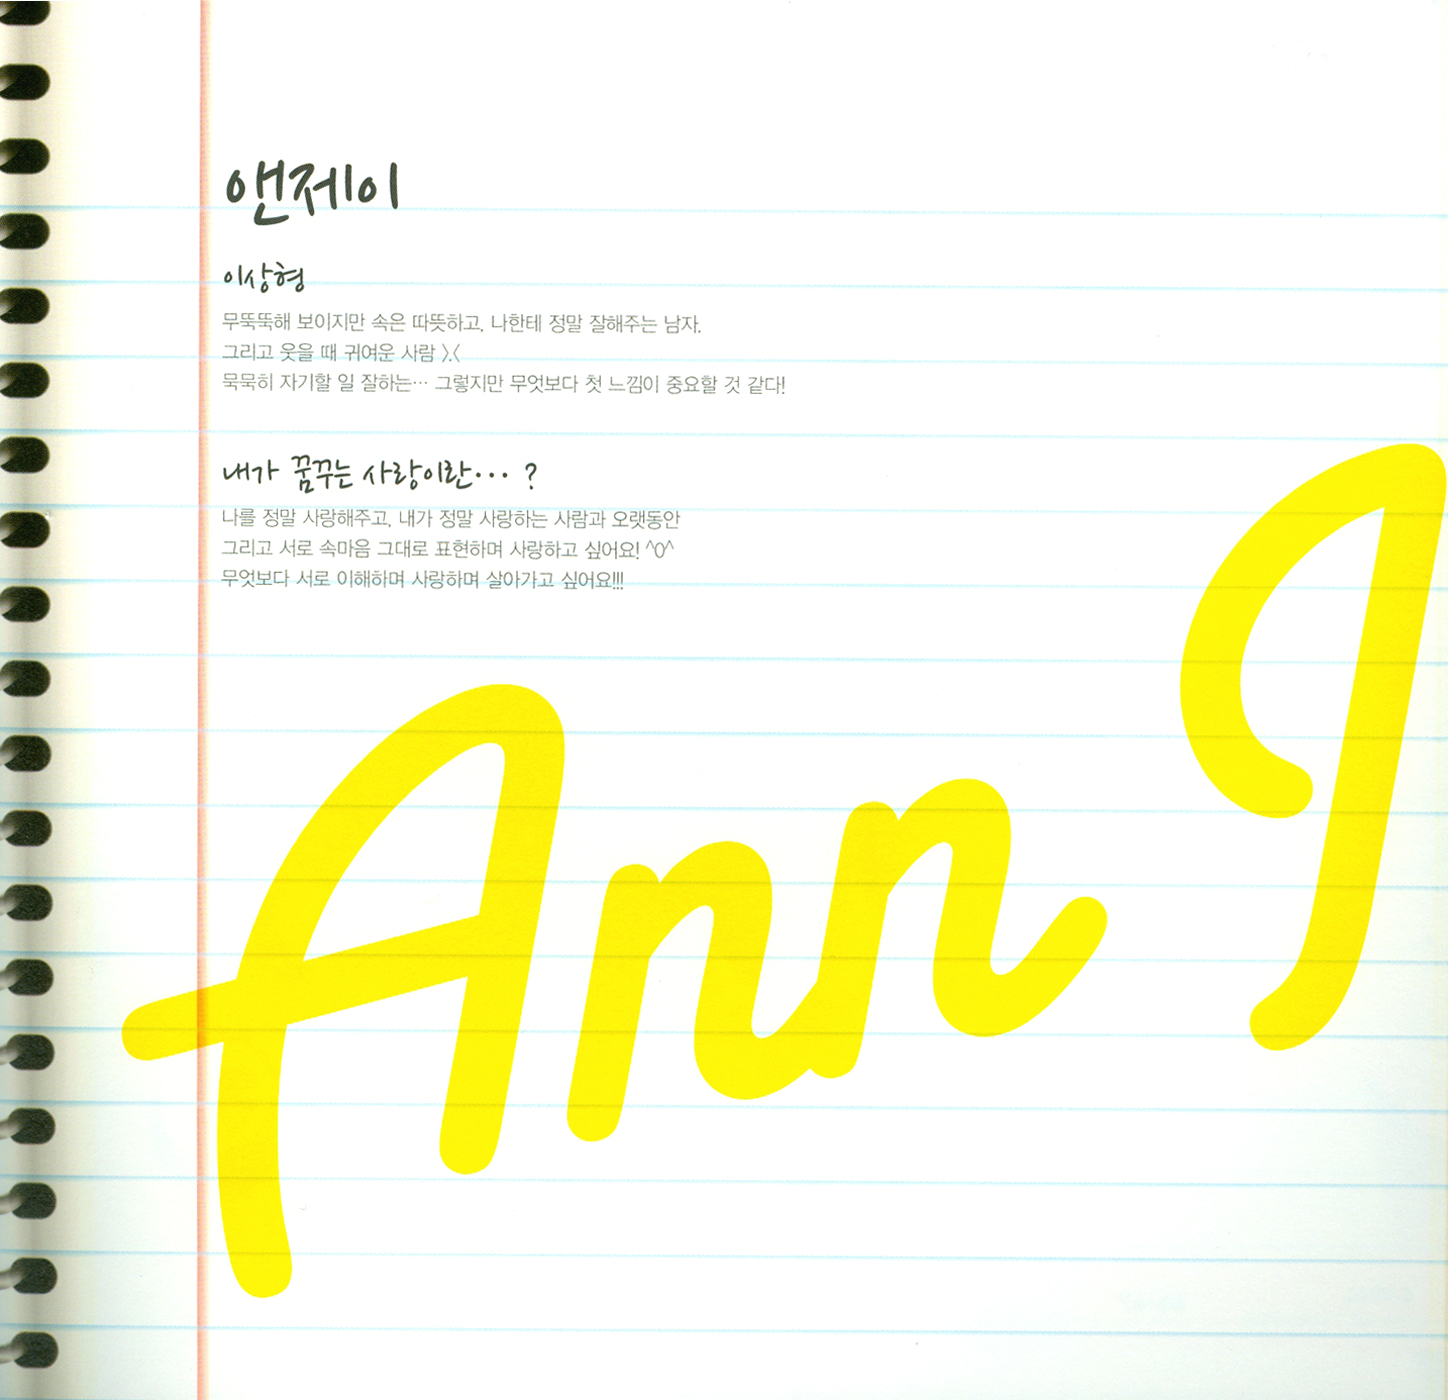 앤제이
이상형
무뚝뚝해 보이지만 속은 따뜻하고, 나한테 정말 잘해주는 남자.
그리고 웃을 때 귀여운 사람 >.<
묵묵히 자기할 일 잘하는… 그렇지만 무엇보다 첫 느낌이 중요할 것 같다!
내가 꿈꾸는 사랑이란… ?
나를 정말 사랑해주고, 내가 정말 사랑하는 사람과 오랫동안
그리고 서로 속마음 그대로 표현하며 사랑하고 싶어요! ^0^
무엇보다 서로 이해하며 사랑하며 살아가고 싶어요!!!
Ann J